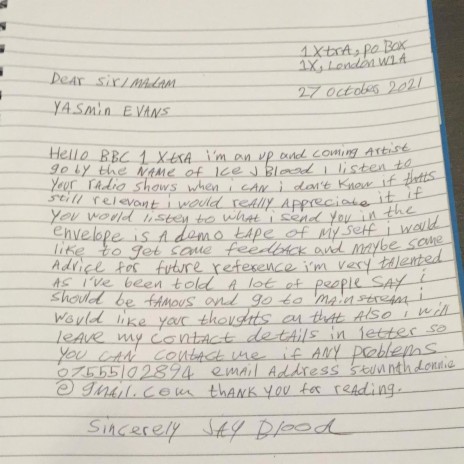 1 XtrA, PO Box
1X, London W1A
Dear Sir/Madam
27 October 2021
YASmin EVANS
Hello BBC 1 XtrA i'm an up and coming Artist
go by the NAME of Ice J Blood i listen to
Your RADIO Shows when i CAN i don't Know if thAts
still relevant i would reAlly Appreciate it if
You would listen to whAt i send You in the
envelope is A demo tApe of MySelf i would
like to get some feedback and mAybe some
Advice for future reference i'm very tAlented
AS i've been told A lot of people SAY i
should be fAmous and go to MAinstreAm i
would like your thoughts on thAt Also i win
leAve my contAct detAils in letter so
You CAN contAct me if ANY problems
07555102894 emAil Address stunnthdonnie
@ gmAil.com thANK YOU for reAding.
Sincerely JAY Blood